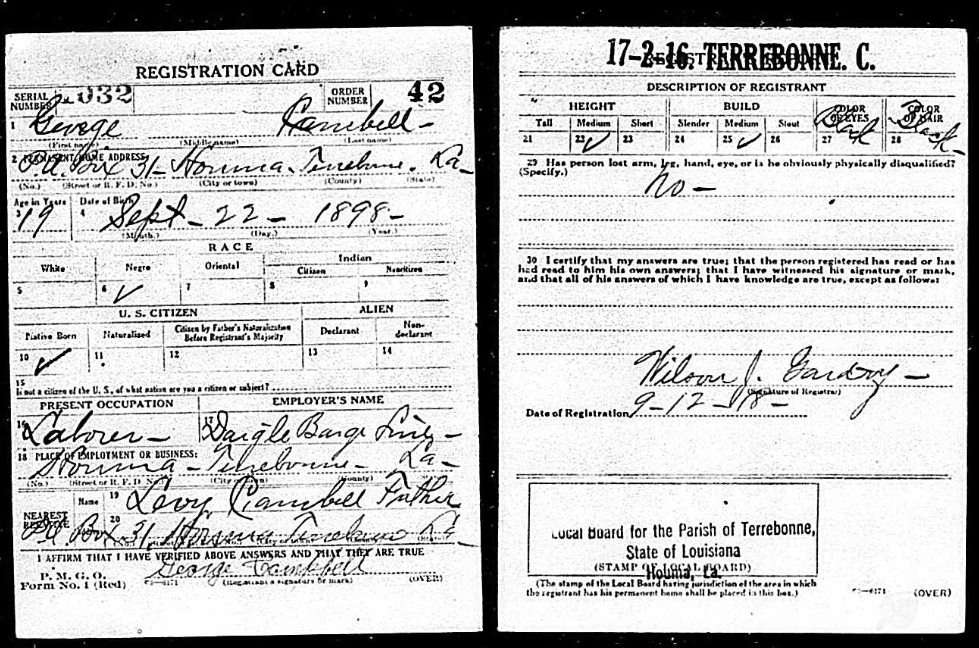 REGISTRATION CARD
SERIAL NUMBER 032 ORDER NUMBER 42
1 George Cambell -
(First name) (Middle name) (Last name)
2 PERMANENT HOME ADDRESS:
P.O. Box 31 - Houma - Terrebonne, La -
(No.) (Street or R. F. D. No.) (City or town) (County) (State)
Age in Years Date of Birth
3 19 4 Sept - 22 - 1898 -
(Month.) (Day.) (Year.)
RACE
White Negro Oriental Indian
Citizen Noncitizen
5 6 ✓ 7 8 9
U. S. CITIZEN ALIEN
Native Born Naturalized Citizen by Father's Naturalization Before Registrant's Majority Declarant Non-declarant
10 ✓ 11 12 13 14
15
If not a citizen of the U. S., of what nation are you a citizen or subject?
PRESENT OCCUPATION EMPLOYER'S NAME
16 Laborer - 17 Daigle Barge Line -
18 PLACE OF EMPLOYMENT OR BUSINESS:
Houma - Terrebonne - La -
(No.) (Street or R. F. D. No.) (City or town) (County)
NEAREST RELATIVE
Name 19 Levy Cambell Father
20 P.O. Box 31, Houma Terrebonne La -
I AFFIRM THAT I HAVE VERIFIED ABOVE ANSWERS AND THAT THEY ARE TRUE
P. M. G. O.
Form No. 1 (Red) George Campbell
(Registrant's signature or mark) (OVER)
17-2-16 TERREBONNE. C.
DESCRIPTION OF REGISTRANT
HEIGHT BUILD COLOR OF EYES COLOR OF HAIR
Tall Medium Short Slender Medium Stout
21 22 ✓ 23 24 25 ✓ 26 27 28 Black
29 Has person lost arm, leg, hand, eye, or is he obviously physically disqualified?
(Specify.)
No -
30 I certify that my answers are true; that the person registered has read or has
had read to him his own answers; that I have witnessed his signature or mark,
and that all of his answers of which I have knowledge are true, except as follows:
Wilson J.
(Signature of Registrar)
Date of Registration 9-12-18-
Local Board for the Parish of Terrebonne,
State of Louisiana
(STAMP OF LOCAL BOARD)
Houma, La.
(The stamp of the Local Board having jurisdiction of the area in which
the registrant has his permanent home shall be placed in this box.)
(OVER)